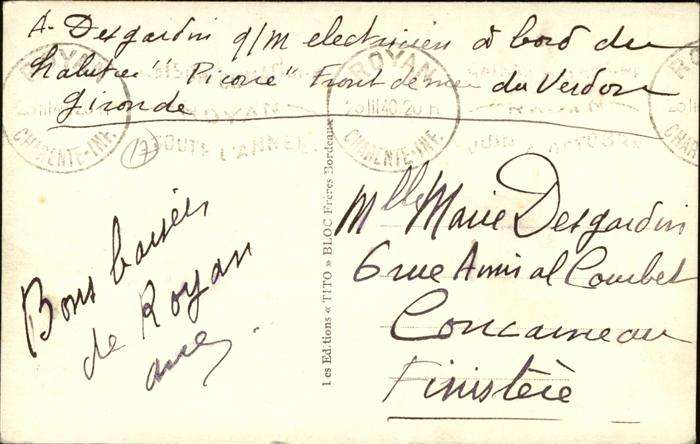 A. Desgardin q/m electricien à bord du
chalutier "Picorre" Front de mer du Verdon
Gironde
ROYAN
23 III 40. 20 H
CHARENTE-INF.
ROYAN
TOUTE L'ANNÉE
17
Les Editions « TITO » BLOC Frères Bordeaux
Bons baisers
de Royan
Mlle Marie Desgardin
6 rue Amiral Courbet
Concarneau
Finistère